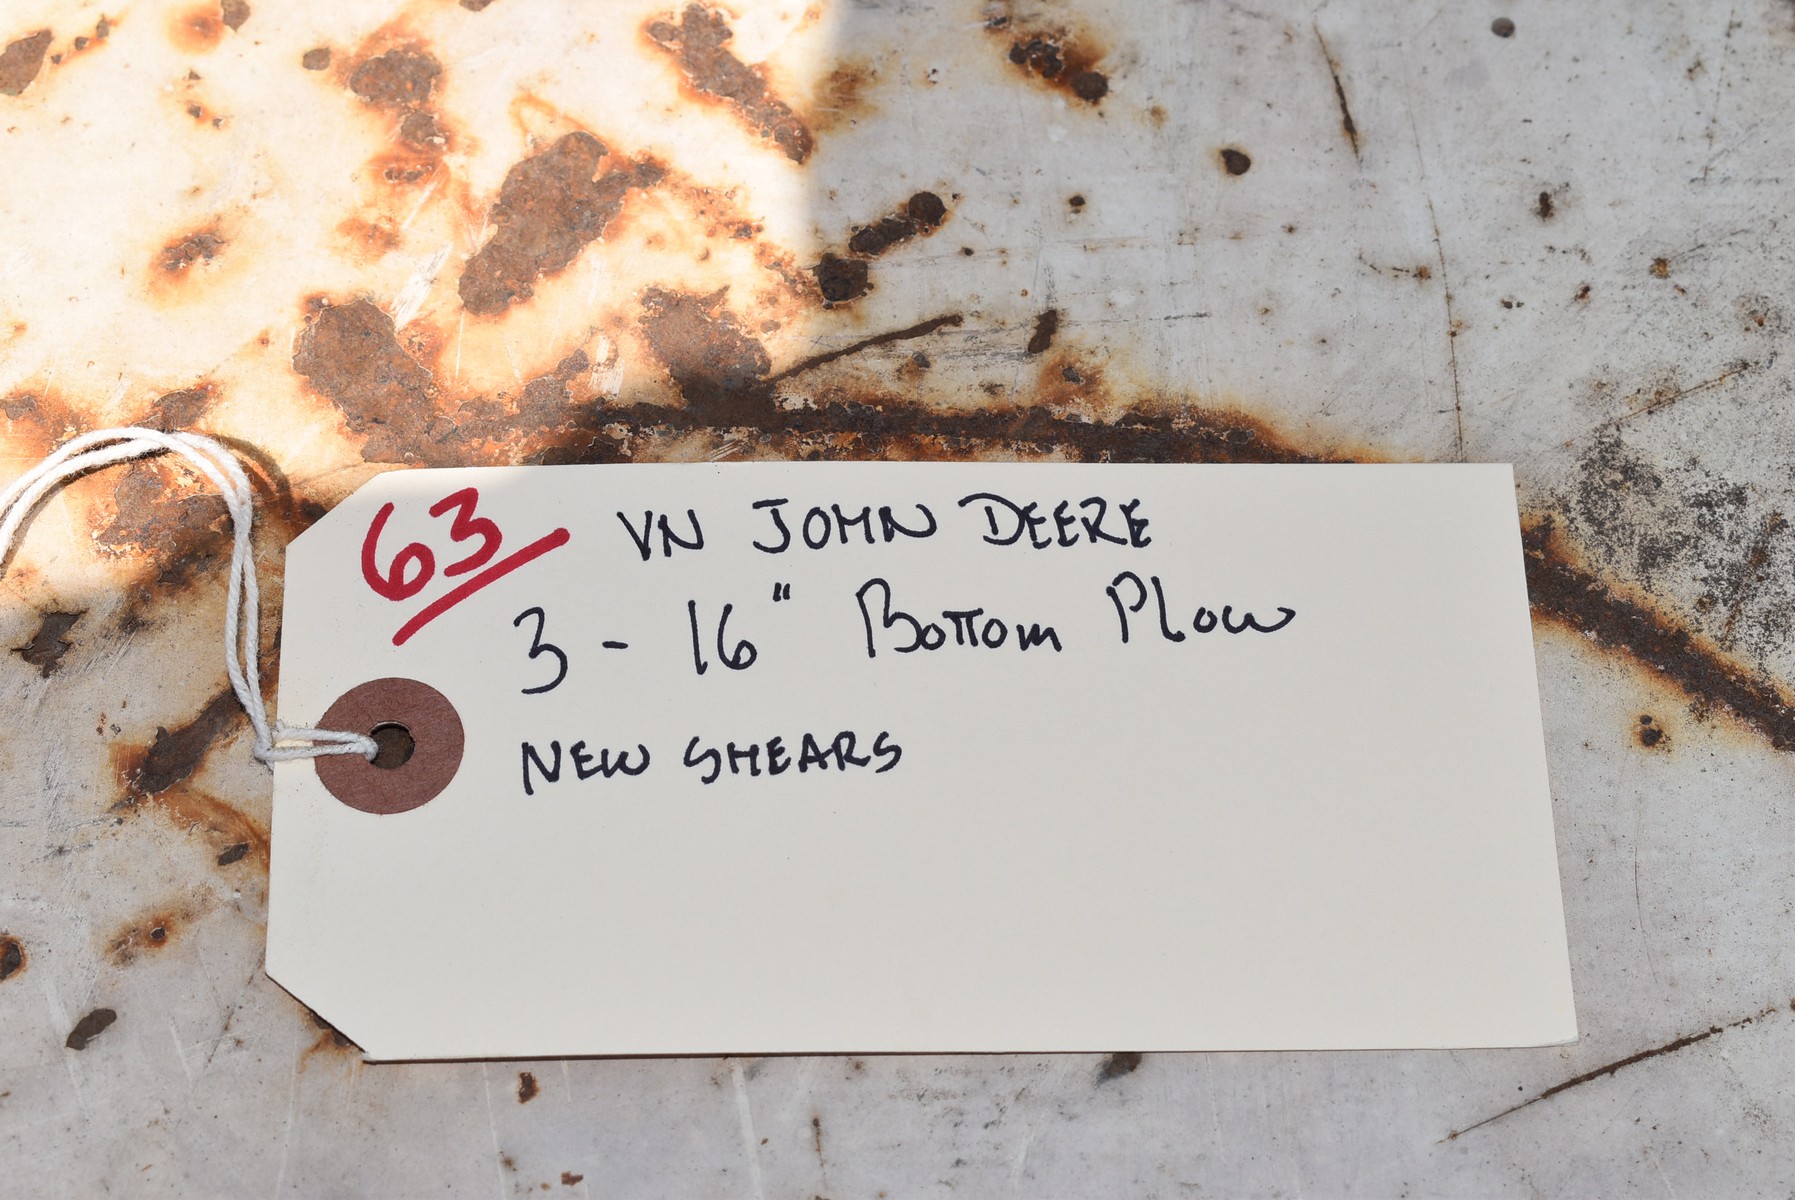 63 VN JOHN DEERE
3 - 16" BOTTOM PLOW
NEW SHEARS